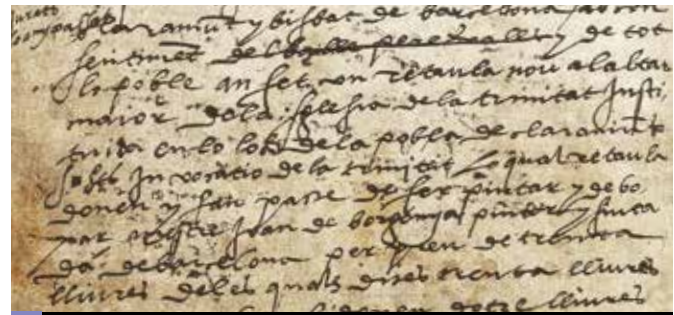 jurats
claramunt y bisbat de barcelona ab con
sentiment del batlle pere y de tot
lo poble an fet un retaula nou al altar
maior de la iglesia de la trinitat insti
tuida en lo loc de la pobla de claramunt
sots invocatio de la trinitat lo qual retaula
donen y fan pacte de fer pintar y de bo
mestre Joan de borgonya pintor y ciuta
da de barcelona per preu de trenta
lliures de les quals dites trenta lliures
donen dotze lliures